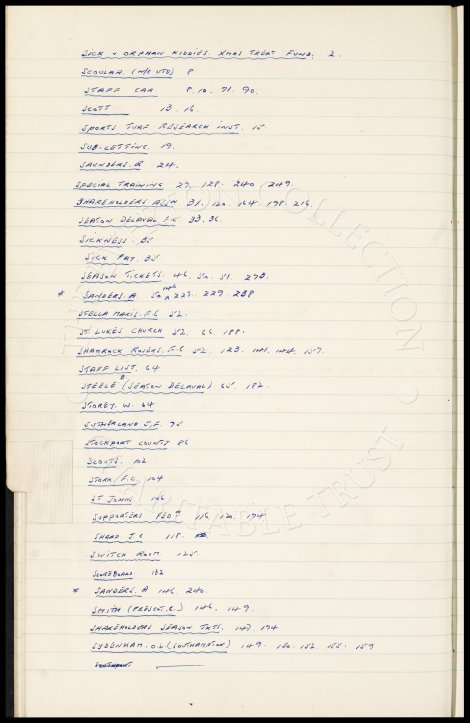 SICK & ORPHAN KIDDIES. XMAS TREAT FUND. 2.
SCOULAR. (N/C UTD) 8
STAFF CAR. 8. 10. 71. 90.
SCOTT 13. 16.
SPORTS TURF RESEARCH INST. 15.
SUB-LETTING. 19
SAUNDERS. R 24.
SPECIAL TRAINING 27. 128. 240. 249.
SHAREHOLDERS ASSN 31. 120. 164. 198. 216.
SEATON DELAVAL F.C 33. 36.
SICKNESS. 35
SICK PAY. 35
SEASON TICKETS. 46. 50. 51. 273.
* SANDERS. A 50. 146 227. 229. 238
STELLA MARIS. F.C 52.
ST. LUKES CHURCH 52. 66. 188.
SHAMROCK ROVERS. F.C 52. 123. 141. 144. 157.
STAFF LIST. 64
STEELE (SEATON DELAVAL) 65. 182.
STOREY. W. 64
SUTHERLAND J.F. 75
STOCKPORT COUNTY 86
SCOUTS. 102
STORK F.C. 104
ST JOHNS 106
SUPPORTERS FEDN 116. 120. 174
SHARP J.C 118.
SWITCH ROOM. 125.
SCOREBOARD 132
* SANDERS. A 146. 240.
SMITH (PRESTON. C.) 146. 149.
SHAREHOLDERS SEASON TKTS. 147. 174
SYDENHAM. O.L. (SOUTHAMPTON) 149. 150. 152. 155. 159
SOUTHPORT.
COLLECTION
TRUST